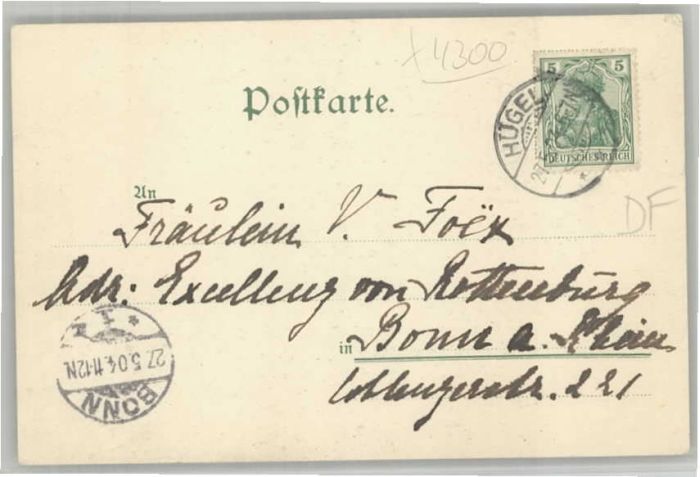 +4300
Postkarte.
5 5
HÜGEL
DEUTSCHES REICH
DF
An
Fräulein V. Foëx
Adr: Excellenz von Rottenburg
in Bonn a. Rhein
Coblenzerstr. 221
27.5.04.11-12N.
BONN